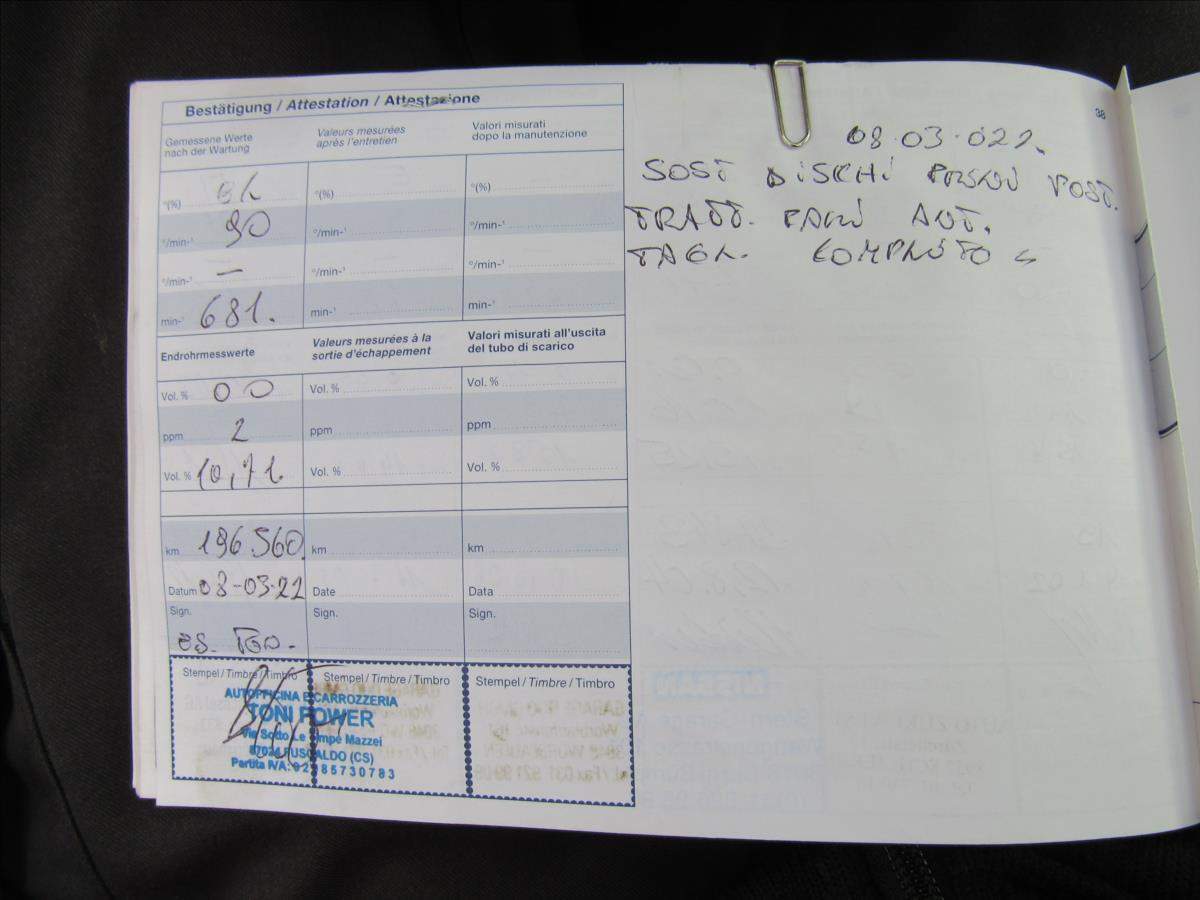 Bestätigung / Attestation / Attestazione
Gemessene Werte nach der Wartung
Valeurs mesurées après l'entretien
Valori misurati dopo la manutenzione
°(%) °(%) °(%)
°/min-¹ 90 °/min-¹ °/min-¹
°/min-¹ — °/min-¹ °/min-¹
min-¹ 681. min-¹ min-¹
Endrohrmesswerte
Valeurs mesurées à la sortie d'échappement
Valori misurati all'uscita del tubo di scarico
Vol. % 00 Vol. % Vol. %
ppm 2 ppm ppm
Vol. % 10,71. Vol. % Vol. %
km 196560 km km
Datum 08-03-22 Date Data
Sign. Sign. Sign.
Stempel / Timbre / Timbro Stempel / Timbre / Timbro Stempel / Timbre / Timbro
AUTOFFICINA E CARROZZERIA
TONI POWER
Via Sotto Le Mazzei
87024 FUSCALDO (CS)
Partita IVA: 85730783
38
08.03.022.
SOST DISCHI POST.
TRATT. AUT.
TAGL. COMPLETO